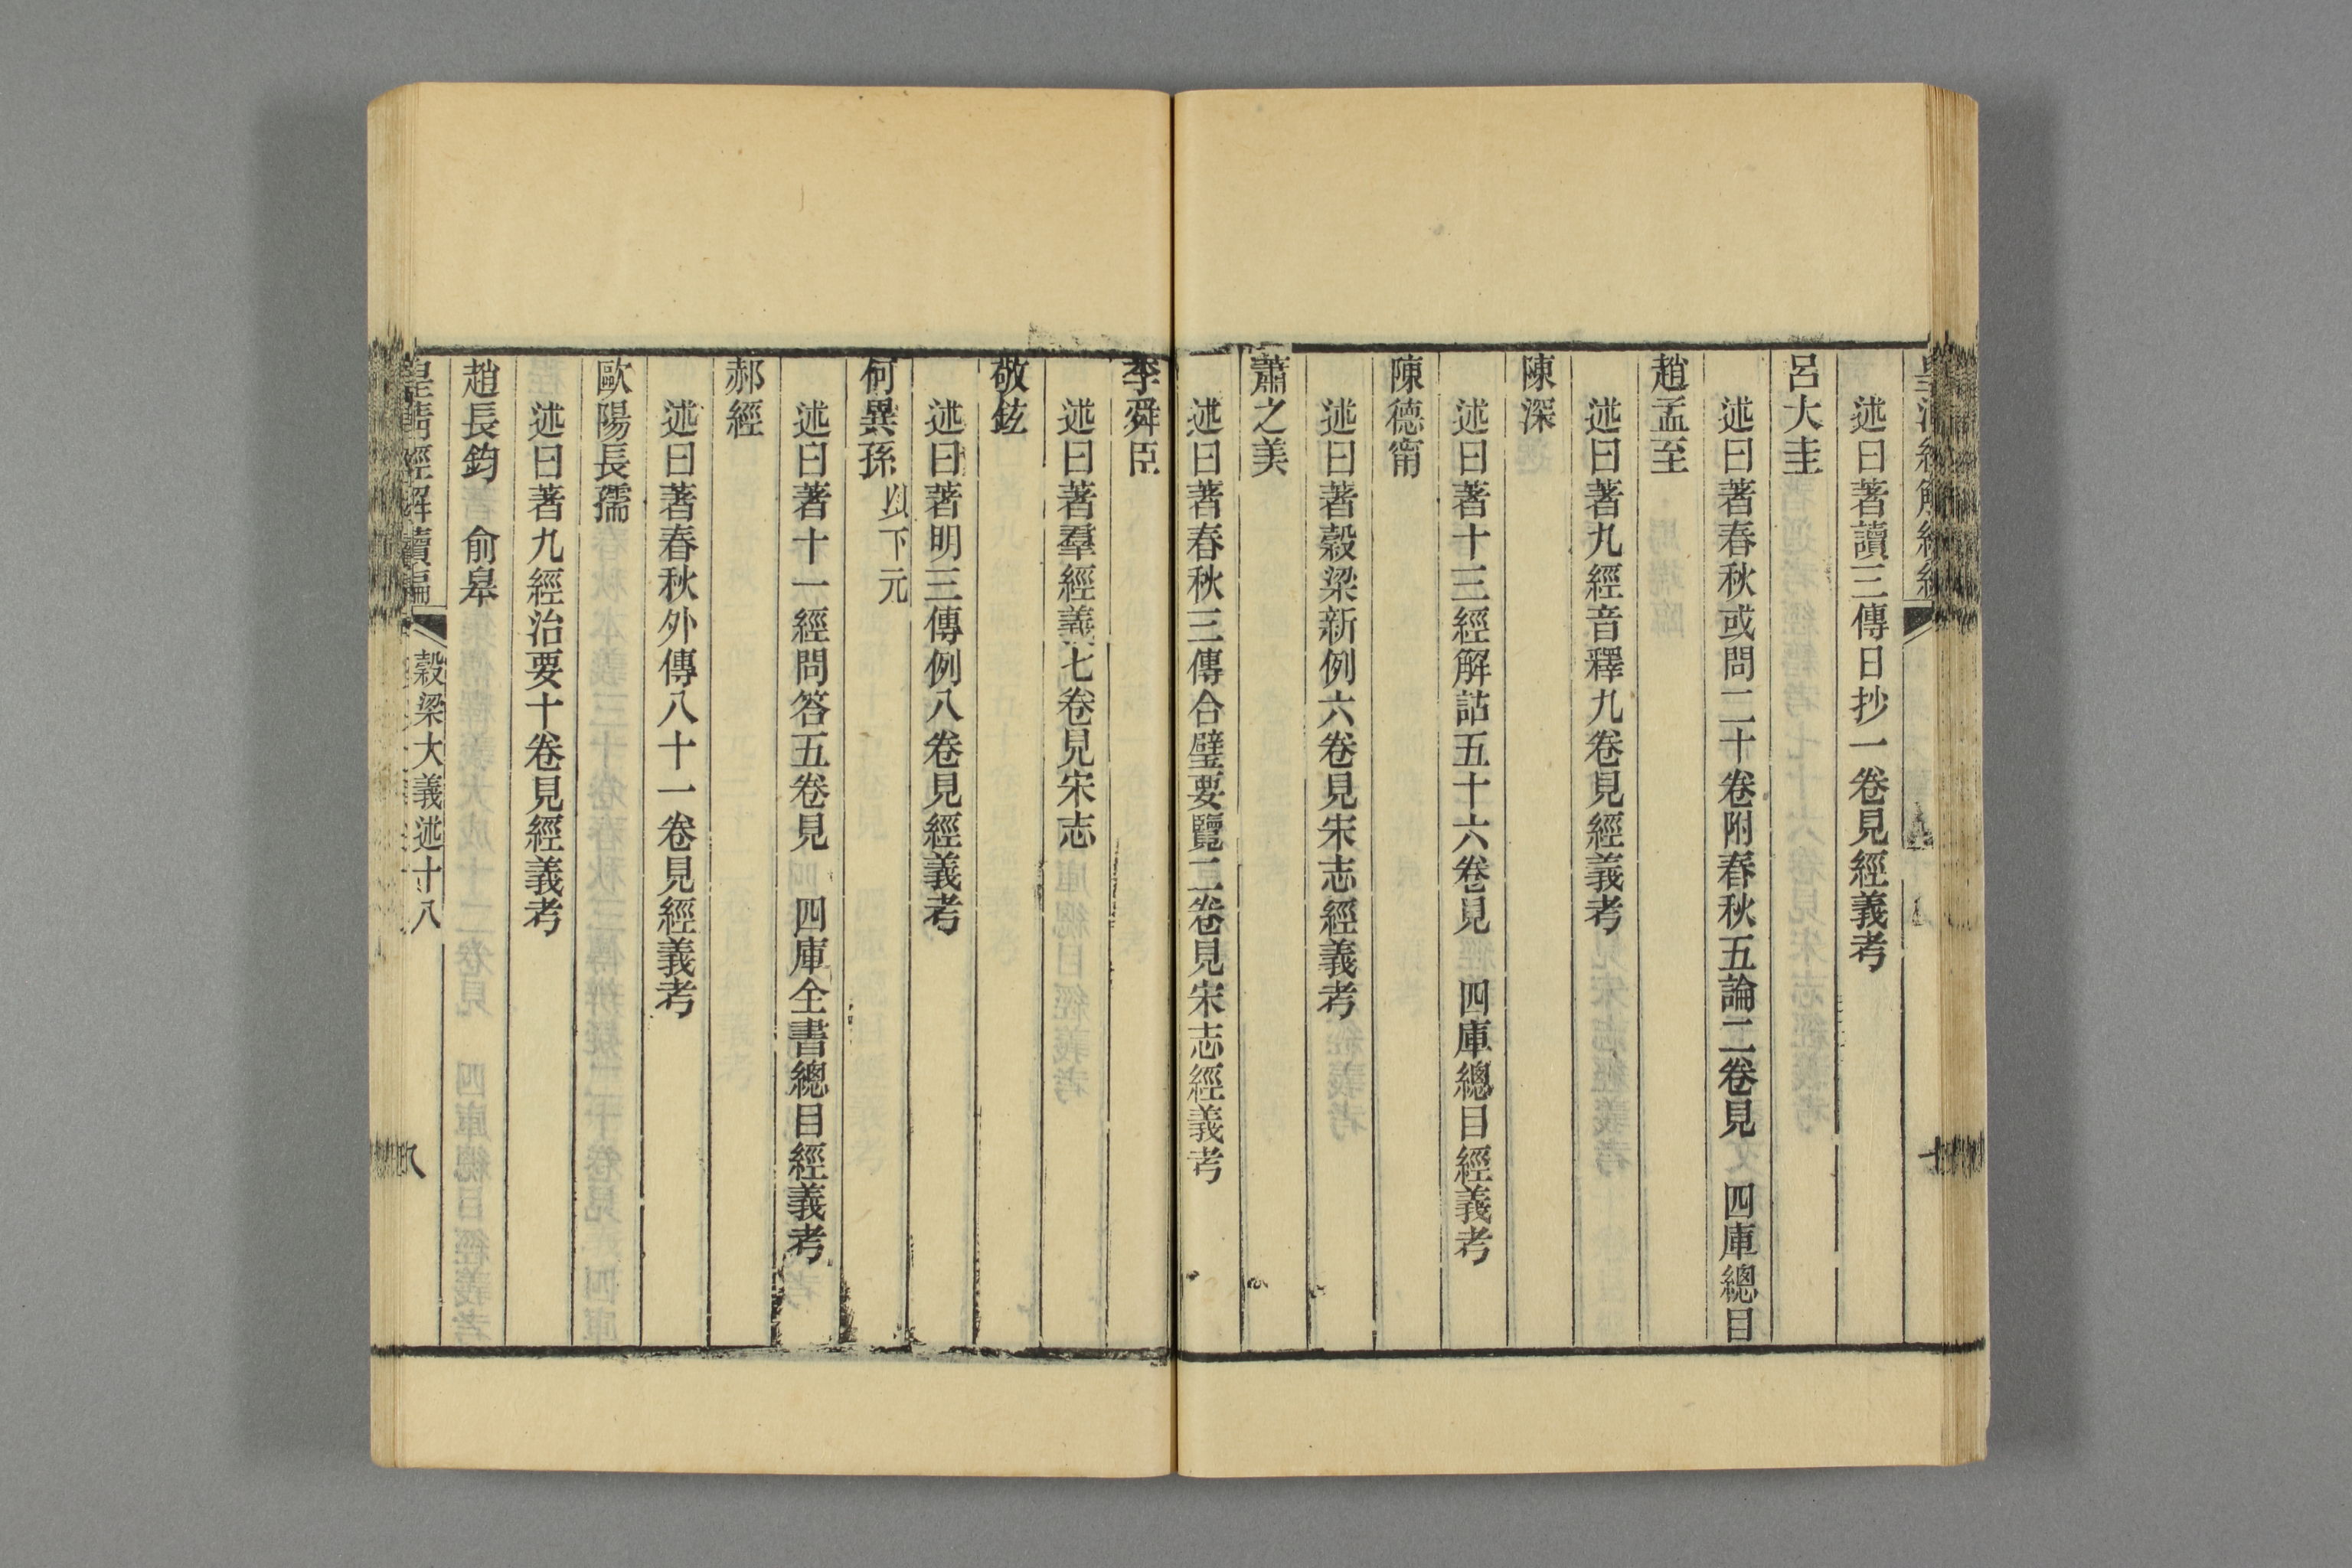 述曰著讀三傳日抄一卷見經義考
呂大圭
述曰著春秋或問二十卷附春秋五論二卷見 四庫總目
趙孟至
述曰著九經音釋九卷見經義考
陳深
述曰著十三經解詁五十六卷見 四庫總目經義考
陳德甯
述曰著穀梁新例六卷見宋志經義考
蕭之美
述曰著春秋三傳合璧要覽二卷見宋志經義考
李舜臣
述曰著羣經義七卷見宋志
敬鉉
述曰著明三傳例八卷見經義考
何異孫 以下元
述曰著十一經問答五卷見 四庫全書總目經義考
郝經
述曰著春秋外傳八十一卷見經義考
歐陽長孺
述曰著九經治要十卷見經義考
趙長鈞 俞皋
皇清經解續編 穀梁大義述十八 八